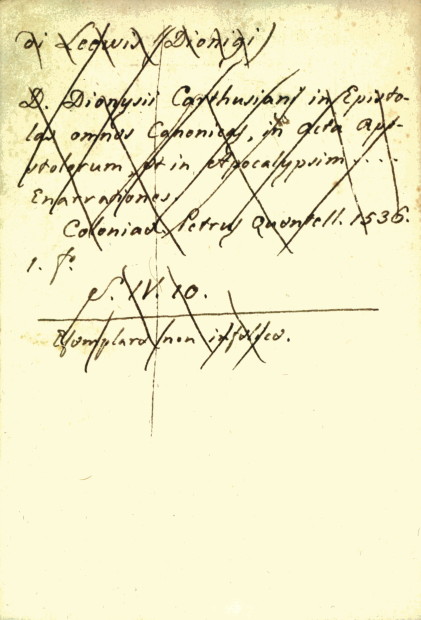 di Leewis (Dionigi)
D. Dionysii Carthusiani in Episto-
las omnes Canonicas, in Acta Apo-
stolorum, et in Apocalypsim....
Enarrationes.
Coloniae. Petrus Quentell. 1536.
1. f°.
S. IV. 10.
Esemplare non